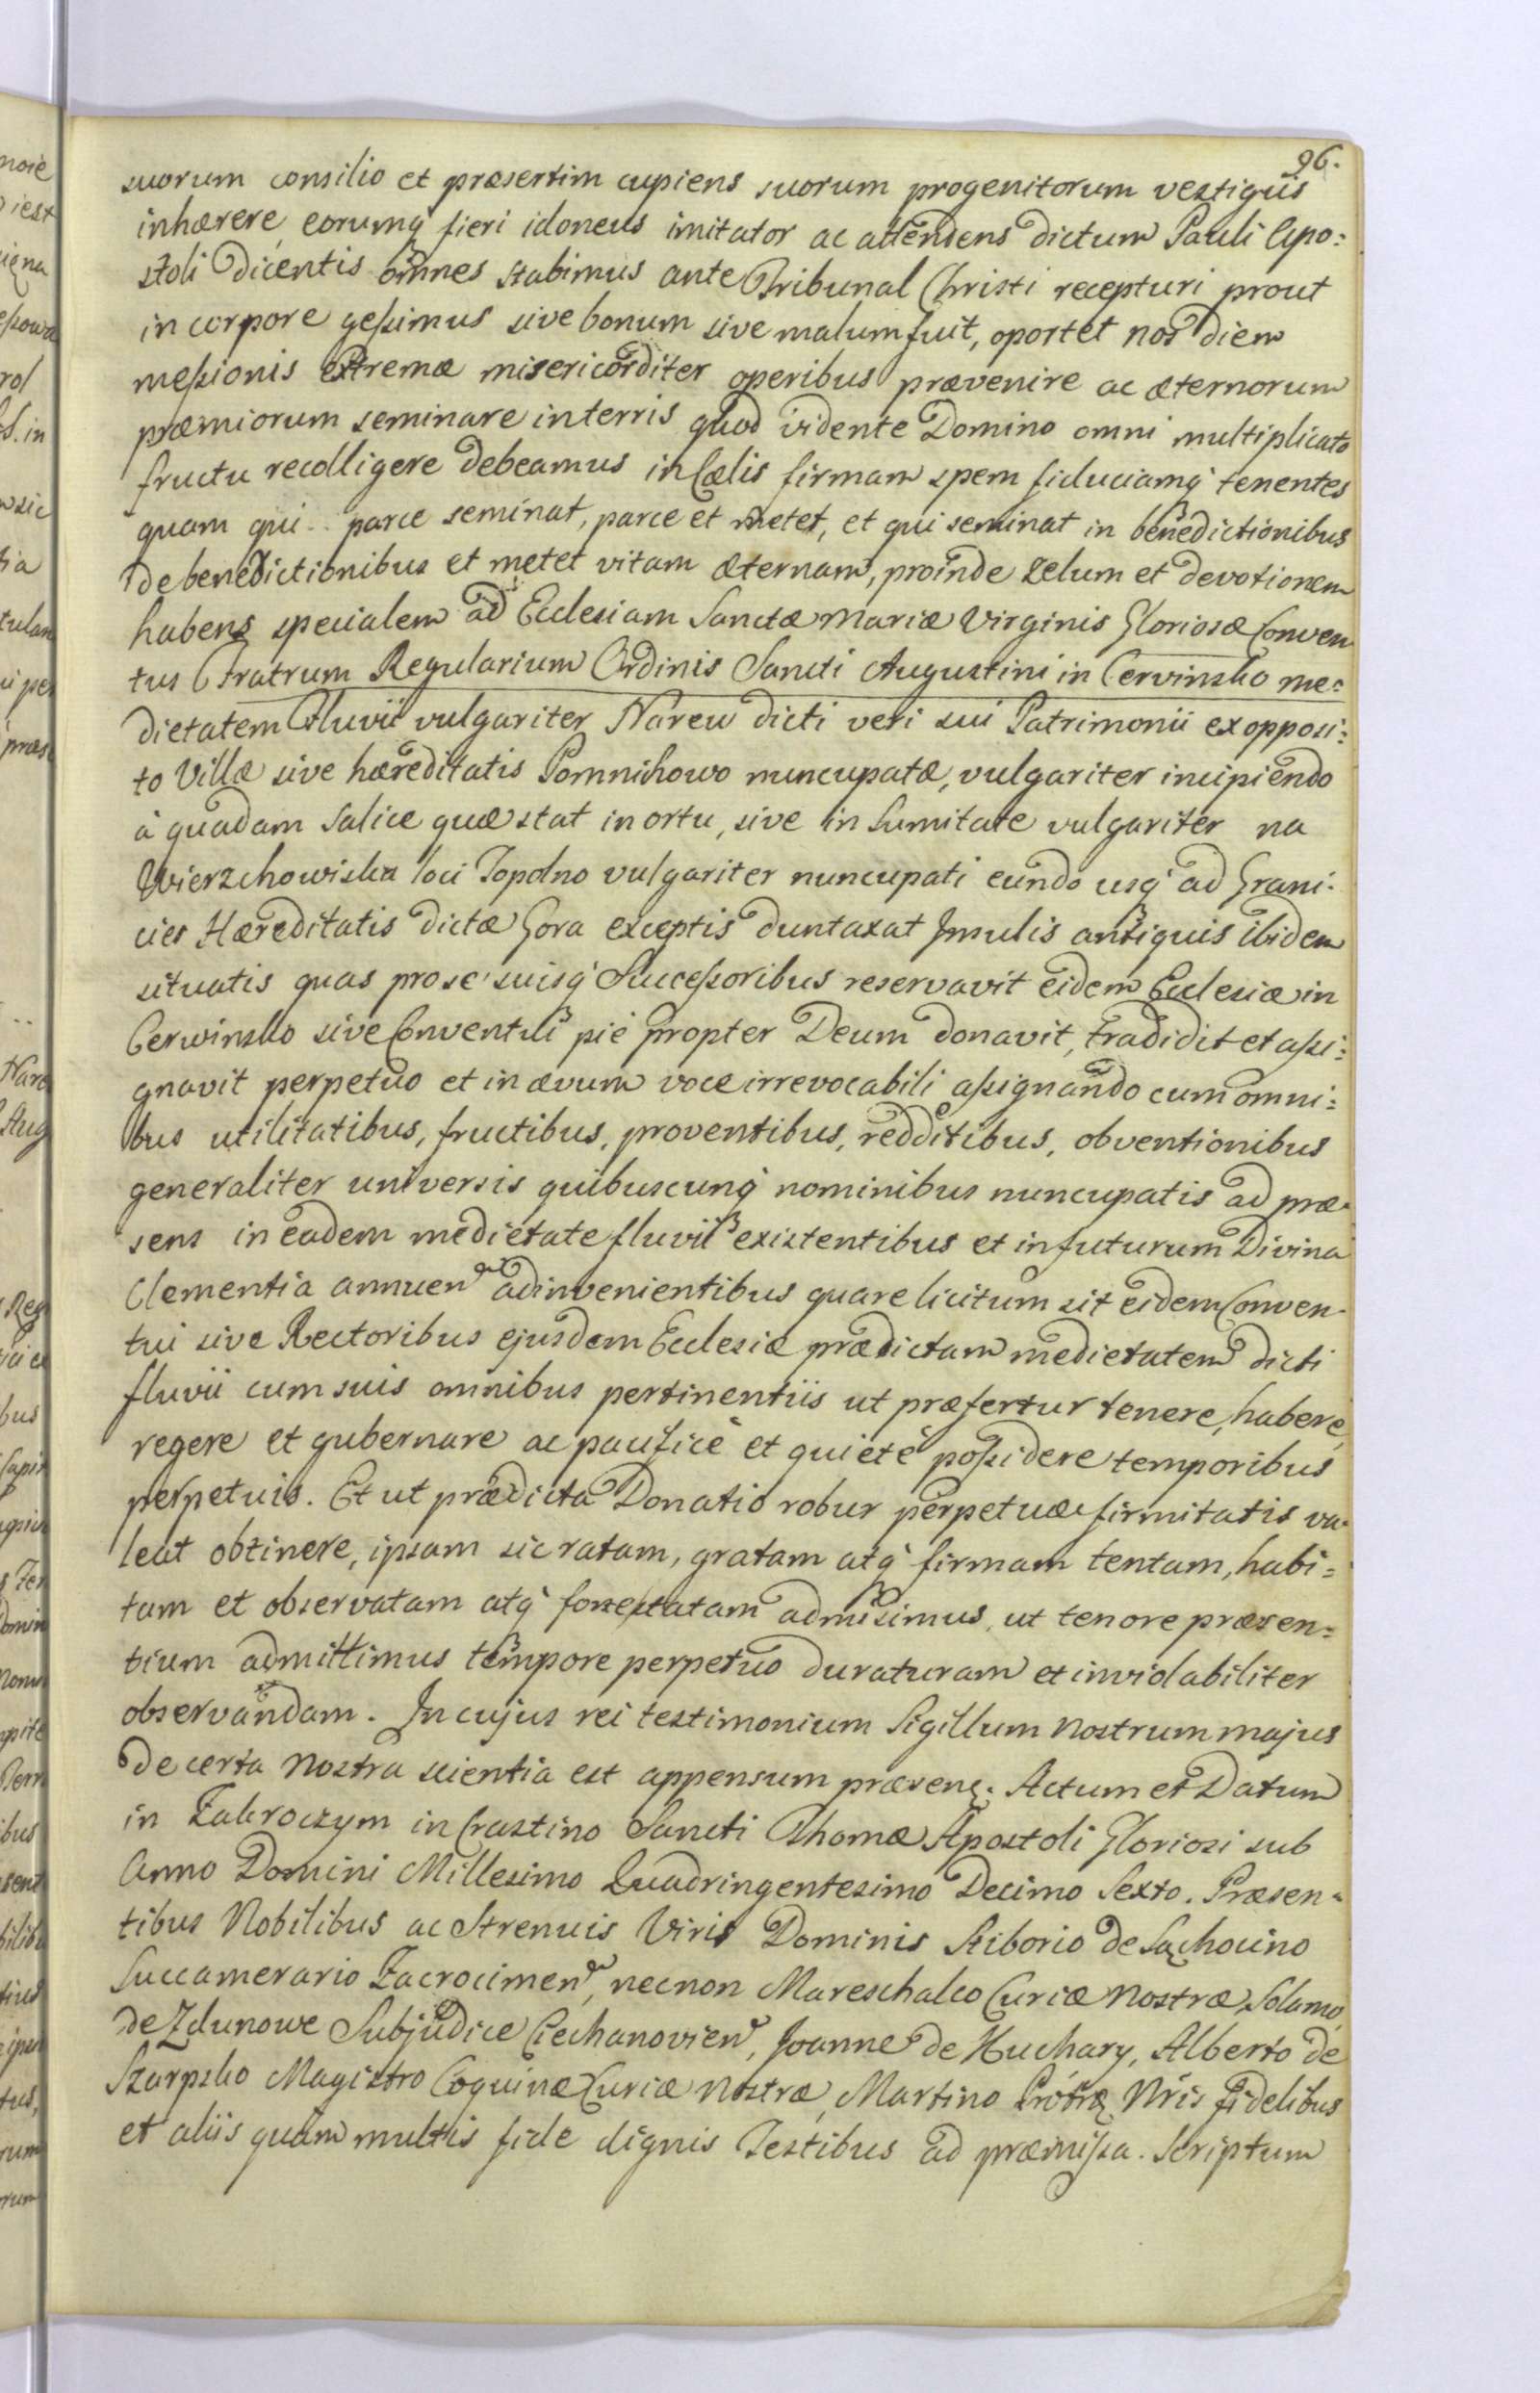 96.
suorum consilio et præsertim cupiens suorum progenitorum vestigiis
inhærere, eorumq́ fieri idoneus imitator ac attendens dictum Pauli Apo:
stoli dicentis omnes stabimus ante Tribunal Christi recepturi prout
in corpore geſsimus sive bonum sive malum fuit, oportet nos diem
meſsionis extremæ misericorditer operibus prævenire ac æternorum
præmiorum seminare in terris quod vidente Domino omni multiplicato
fructu recolligere debeamus in Cælis firmam spem fiduciamq́ tenentes
quam qui .. parce seminat, parce et metet, et qui seminat in benedictionibus
de benedictionibus et metet vitam æternam, proinde zelum et devotionem
habens specialem ad Ecclesiam Sanctæ Mariæ Virginis Gloriosæ Conven
tus Fratrum Regularium Ordinis Sancti Augustini in Cervinsko me:
dietatem Fluvii vulgariter Narew dicti veri sui Patrimonii ex opposi:
to Villæ sive hæreditatis Pomnichowo nuncupatæ, vulgariter incipiendo
à quadam Salice quæ stat in ortu, sive in Sumitate vulgariter na
Wierzchowisku loci Topolno vulgariter nuncupati eundo usq́ ad Grani:
cies Hæreditatis dictæ Gora exceptis duntaxat Insulis antiquis ibidem
situatis quas pro se suisq́ Succeſsoribus reservavit eidem Ecclesiæ in
Cerwinsko sive Conventui pie propter Deum donavit, tradidit et aſsi:
gnavit perpetuo et in ævum voce irrevocabili aſsignando cum omni:
bus utilitatibus, fructibus, proventibus, redditibus, obventionibus
generaliter universis quibuscunq́ nominibus nuncupatis ad præ-
sens in eadem medietate fluvii existentibus et in futurum Divina
Clementia annuen adinvenientibus quare licitum sit eidem Conven-
tui sive Rectoribus ejusdem Ecclesiæ prædictam medietatem dicti
fluvii cum suis omnibus pertinentiis ut præfertur tenere, habere,
regere et gubernare ac pacifice et quiete poſsidere temporibus
perpetuis. Et ut prædicta Donatio robur perpetuæ firmitatis va-
leat obtinere, ipsam sic ratam, gratam atq́ firmam tentam, habi:
tam et observatam atq́ admisimus, ut tenore præsen:
tium admittimus tempore perpetuo duraturam et inviolabiliter
observandam. In cujus rei testimonium Sigillum Nostrum majus
de certa Nostra scientia est appensum præsen. Actum et Datum
in Zakroczym in Crastino Sancti Thomæ Apostoli Gloriosi sub
Anno Domini Millesimo Quadringentesimo Decimo Sexto. Præsen-
tibus Nobilibus ac Strenuis Viris Dominis Stiborio de Sąchocino
Succamerario Zacrocimen, necnon Mareschalco Curiæ Nostræ, Solamo
de Zdunowe Subjudice Ciechanovien, Joanne de Kuchary, Alberto de
Szarpsko Magistro Coquinæ Curiæ Nostræ, Martino Nris fidelibus
et aliis quam multis fide dignis Testibus ad præmiſsa. Scriptum